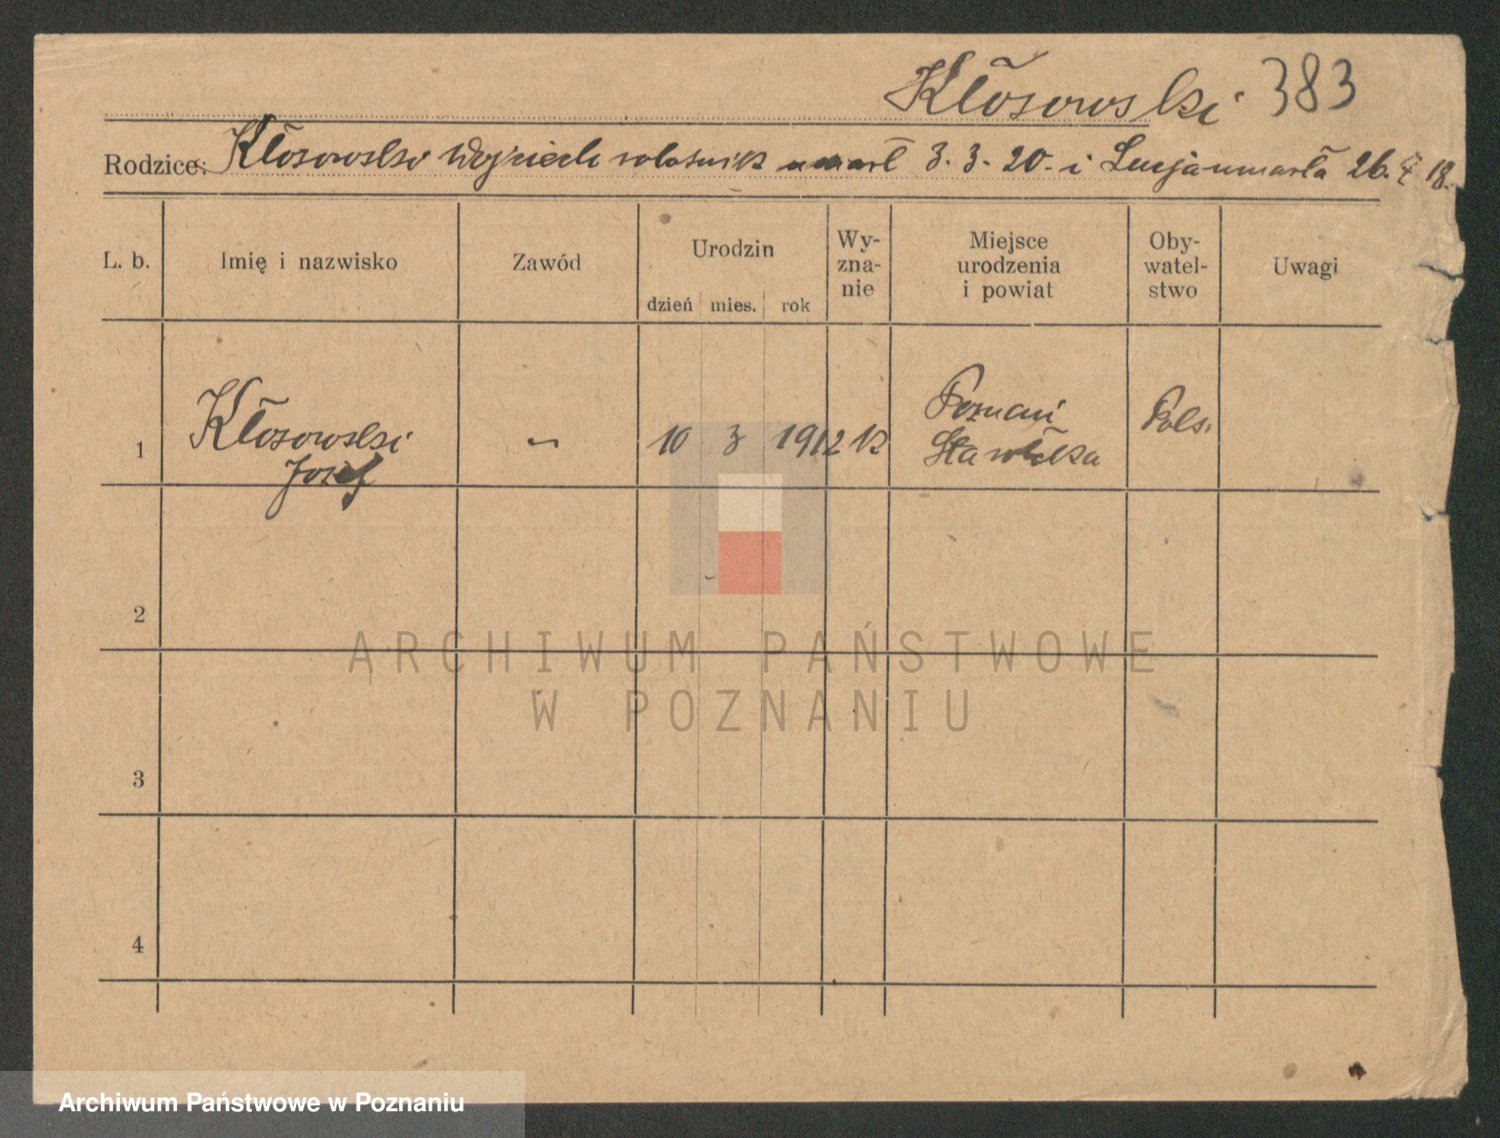 Kłosowski 383
Rodzice: Kłosowski Wojciech robotnik umarł 3.3.20. i Lucja umarła 26. 18.
L. b. Imię i nazwisko Zawód Urodzin dzień mies. rok Wy-
zna-
nie Miejsce
urodzenia
i powiat Oby-
watel-
stwo Uwagi
1 Kłosowski
Józef — 10 3 1912 k Poznań
Starołęka Pols.
2
3
4
ARCHIWUM PAŃSTWOWE
W POZNANIU
Archiwum Państwowe w Poznaniu